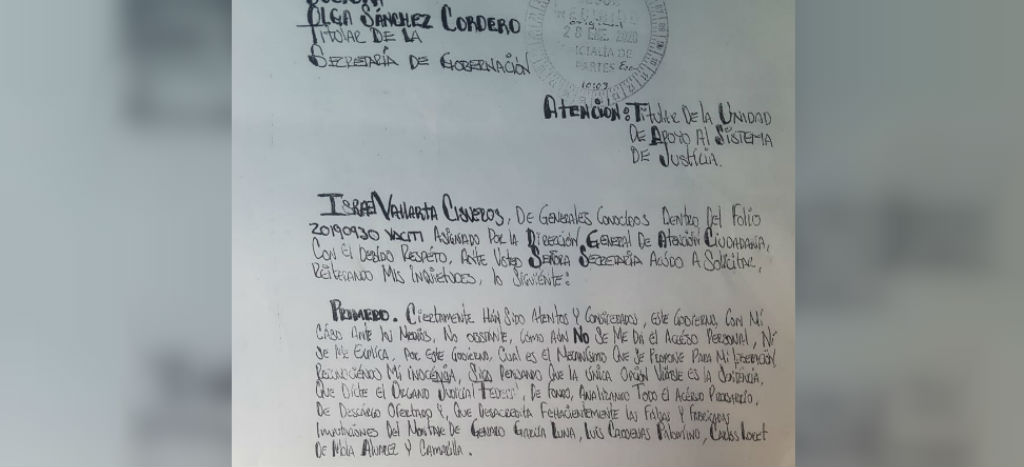 OLGA SÁNCHEZ CORDERO
TITULAR DE LA
SECRETARÍA DE GOBERNACIÓN
28 ENE. 2020
OFICIALIA DE
PARTES
ATENCIÓN: TITULAR DE LA UNIDAD
DE APOYO AL SISTEMA
DE JUSTICIA.
ISRAEL VALLARTA CISNEROS, DE GENERALES CONOCIDOS DENTRO DEL FOLIO
ASIGNADO POR LA DIRECCIÓN GENERAL DE ATENCIÓN CIUDADANA,
CON EL DEBIDO RESPETO, ANTE USTED SEÑORA SECRETARIA ACUDO A SOLICITAR,
REITERANDO MIS INQUIETUDES, LO SIGUIENTE:
PRIMERO. CIERTAMENTE HAN SIDO ATENTOS Y CONSIDERADOS, ESTE GOBIERNO, CON MI
CASO ANTE LOS MEDIOS, NO OBSTANTE, COMO AÚN NO SE ME DA EL ACCESO PERSONAL, NI
SE ME EXPLICA, POR ESTE GOBIERNO, CUAL ES EL MECANISMO QUE SE PROPONE PARA MI LIBERACIÓN
RECONOCIENDO MI INOCENCIA, SIGO PENSANDO QUE LA ÚNICA OPCIÓN VIABLE ES LA SENTENCIA,
QUE DICTE EL ORGANO JUDICIAL FEDERAL, DE FONDO, ANALIZANDO TODO EL ACERVO PROBATORIO,
DE DESCARGO OFERTADO Y, QUE DESACREDITA FEHACIENTEMENTE LAS FALSAS Y FABRICADAS
IMPUTACIONES DEL MONTAJE DE GENARO GARCÍA LUNA, LUIS CARDENAS PALOMINO, CARLOS LORET
DE MOLA ALVAREZ Y CAMARILLA.